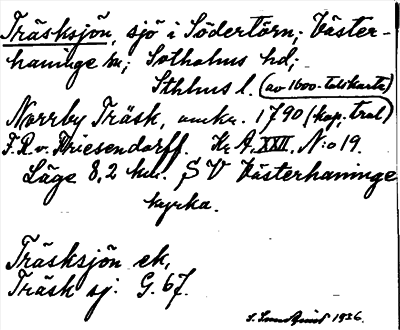 Träsksjön, sjö i Södertörn; Väster-
haninge sn; Sotholms hd;
Sthlms l. (av 1600-talskarta)
Norrby Träsk, omkr. 1790 (kop. trol
F.R. v. Friesendorff. Kr A. XXII. N:o 19.
Läge 8,2 km. SV Västerhaninge
kyrka.
Träsksjön ek,
Träsk sj. G. 67.
1926.